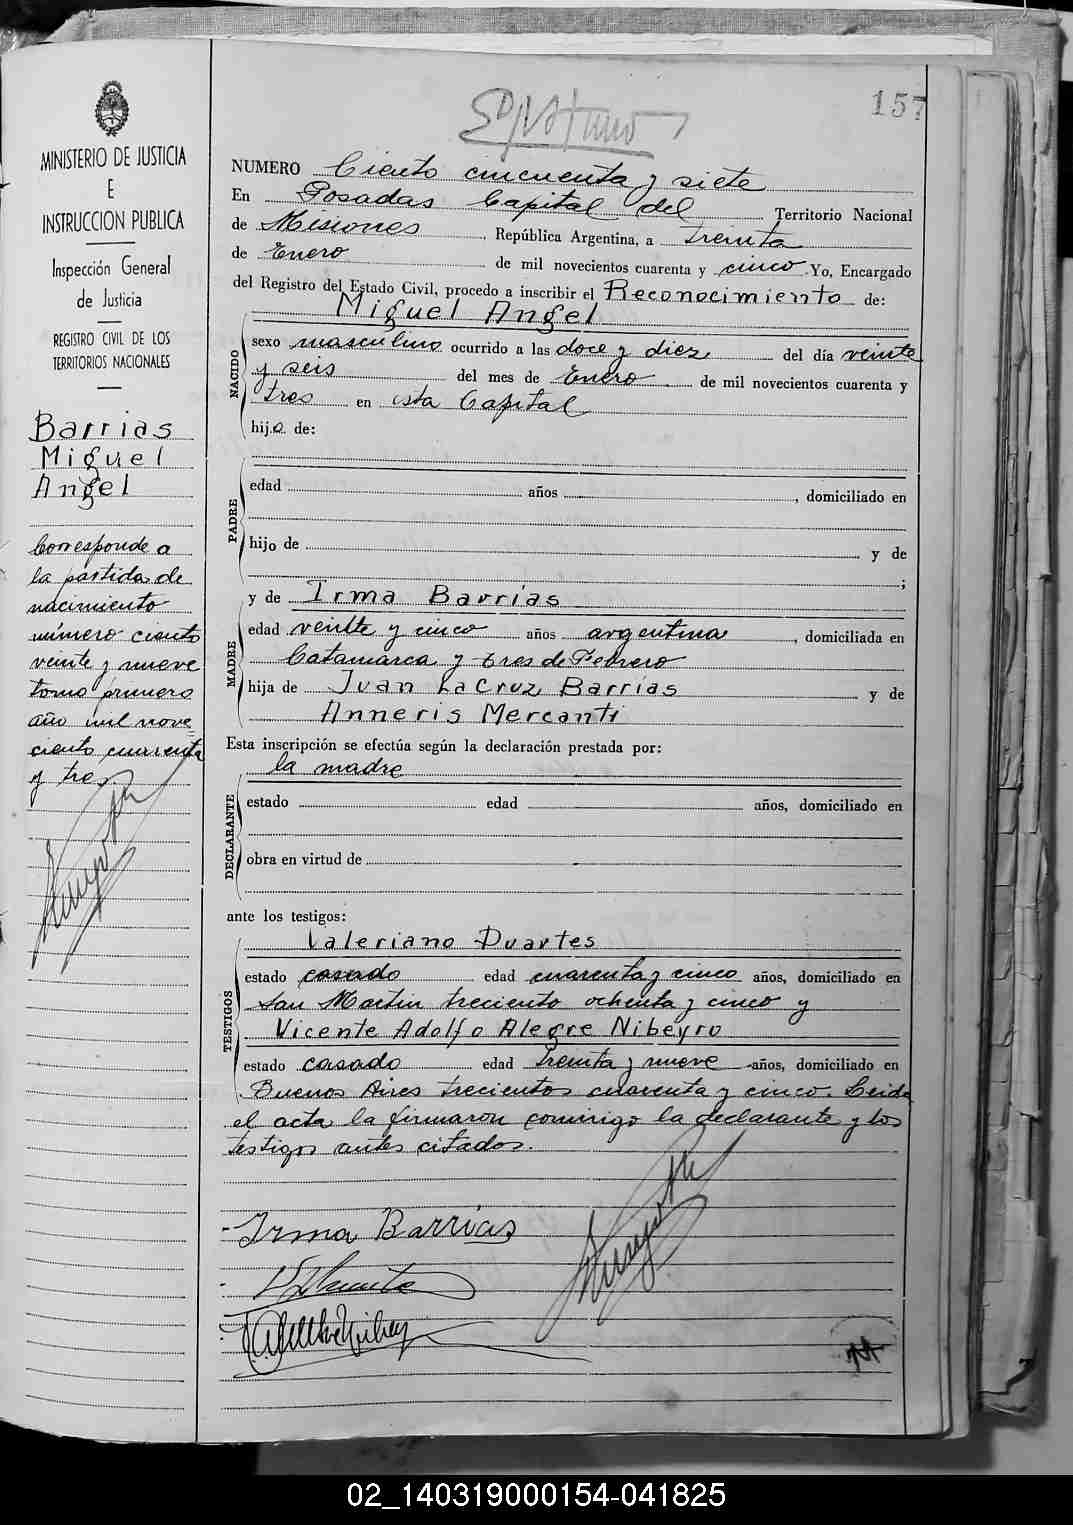 157
MINISTERIO DE JUSTICIA
E
INSTRUCCION PUBLICA
Inspección General
de Justicia
REGISTRO CIVIL DE LOS
TERRITORIOS NACIONALES
Barrias
Miguel
Angel
Corresponde a
la partida de
nacimiento
número ciento
veinte y nueve
tomo primero
año mil nove
ciento cuarenta
y tres
NUMERO Ciento cincuenta y siete
En Posadas Capital del Territorio Nacional
de Misiones República Argentina, a treinta
de Enero de mil novecientos cuarenta y cinco. Yo, Encargado
del Registro del Estado Civil, procedo a inscribir el Reconocimiento de:
Miguel Angel
NACIDO
sexo masculino ocurrido a las doce y diez del día veinte
y seis del mes de Enero de mil novecientos cuarenta y
tres en esta Capital
hijo de:
PADRE
edad años , domiciliado en
hijo de y de
;
y de Irma Barrias
MADRE
edad veinte y cinco años argentina , domiciliada en
Catamarca y tres de Febrero
hija de Juan LaCruz Barrias y de
Anneris Mercanti
Esta inscripción se efectúa según la declaración prestada por:
la madre
DECLARANTE
estado edad años, domiciliado en
obra en virtud de
ante los testigos:
Valeriano Duartes
TESTIGOS
estado casado edad cuarenta y cinco años, domiciliado en
San Martin treciento ochenta y cinco y
Vicente Adolfo Alegre Nibeyro
estado casado edad treinta y nueve años, domiciliado en
Buenos Aires trecientos cuarenta y cinco. Leida
el acta la firmaron conmigo la declarante y los
testigos antes citados.
Irma Barrias
02_140319000154-041825